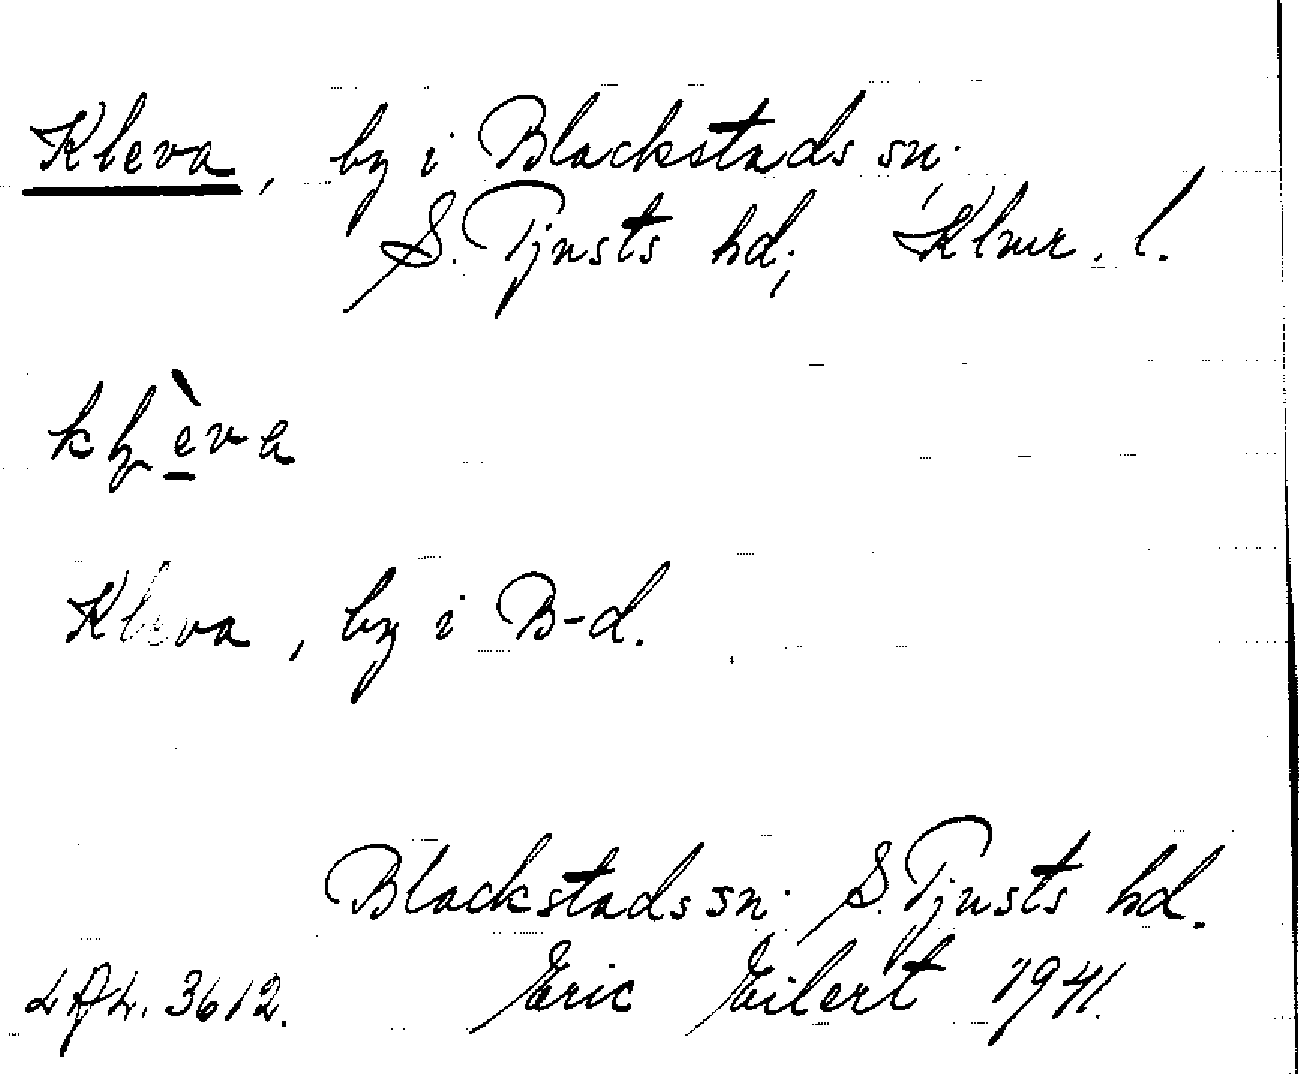 Kleva, by i Blackstads sn.
S. Tjusts hd, Klmr. l.
kḷèva
Kleva, by i B-d.
Blackstads sn. S. Tjusts hd.
Eric Eilert 1941.
LAL. 3612.